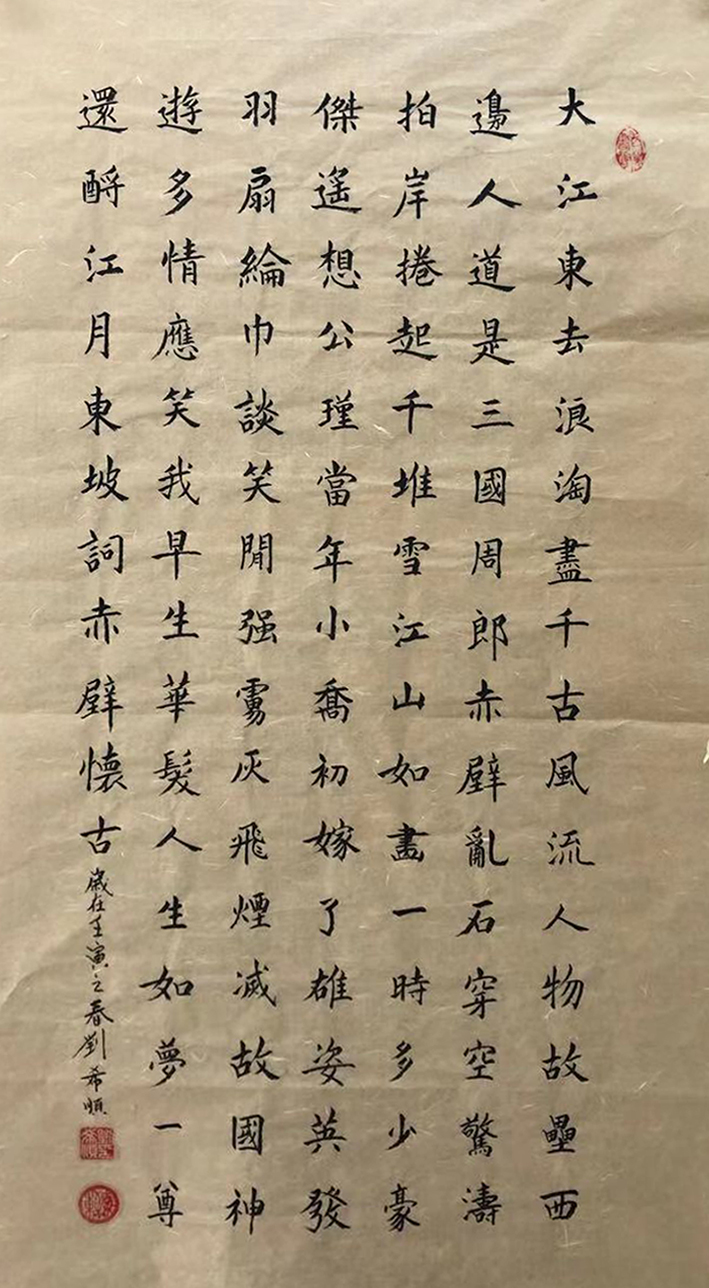 大江東去浪淘盡千古風流人物故壘西
邊人道是三國周郎赤壁亂石穿空驚濤
拍岸捲起千堆雪江山如畫一時多少豪
傑遙想公瑾當年小喬初嫁了雄姿英發
羽扇綸巾談笑閒强虜灰飛煙滅故國神
遊多情應笑我早生華髮人生如夢一尊
還酹江月東坡詞赤壁懷古
歲在壬寅之春劉希順